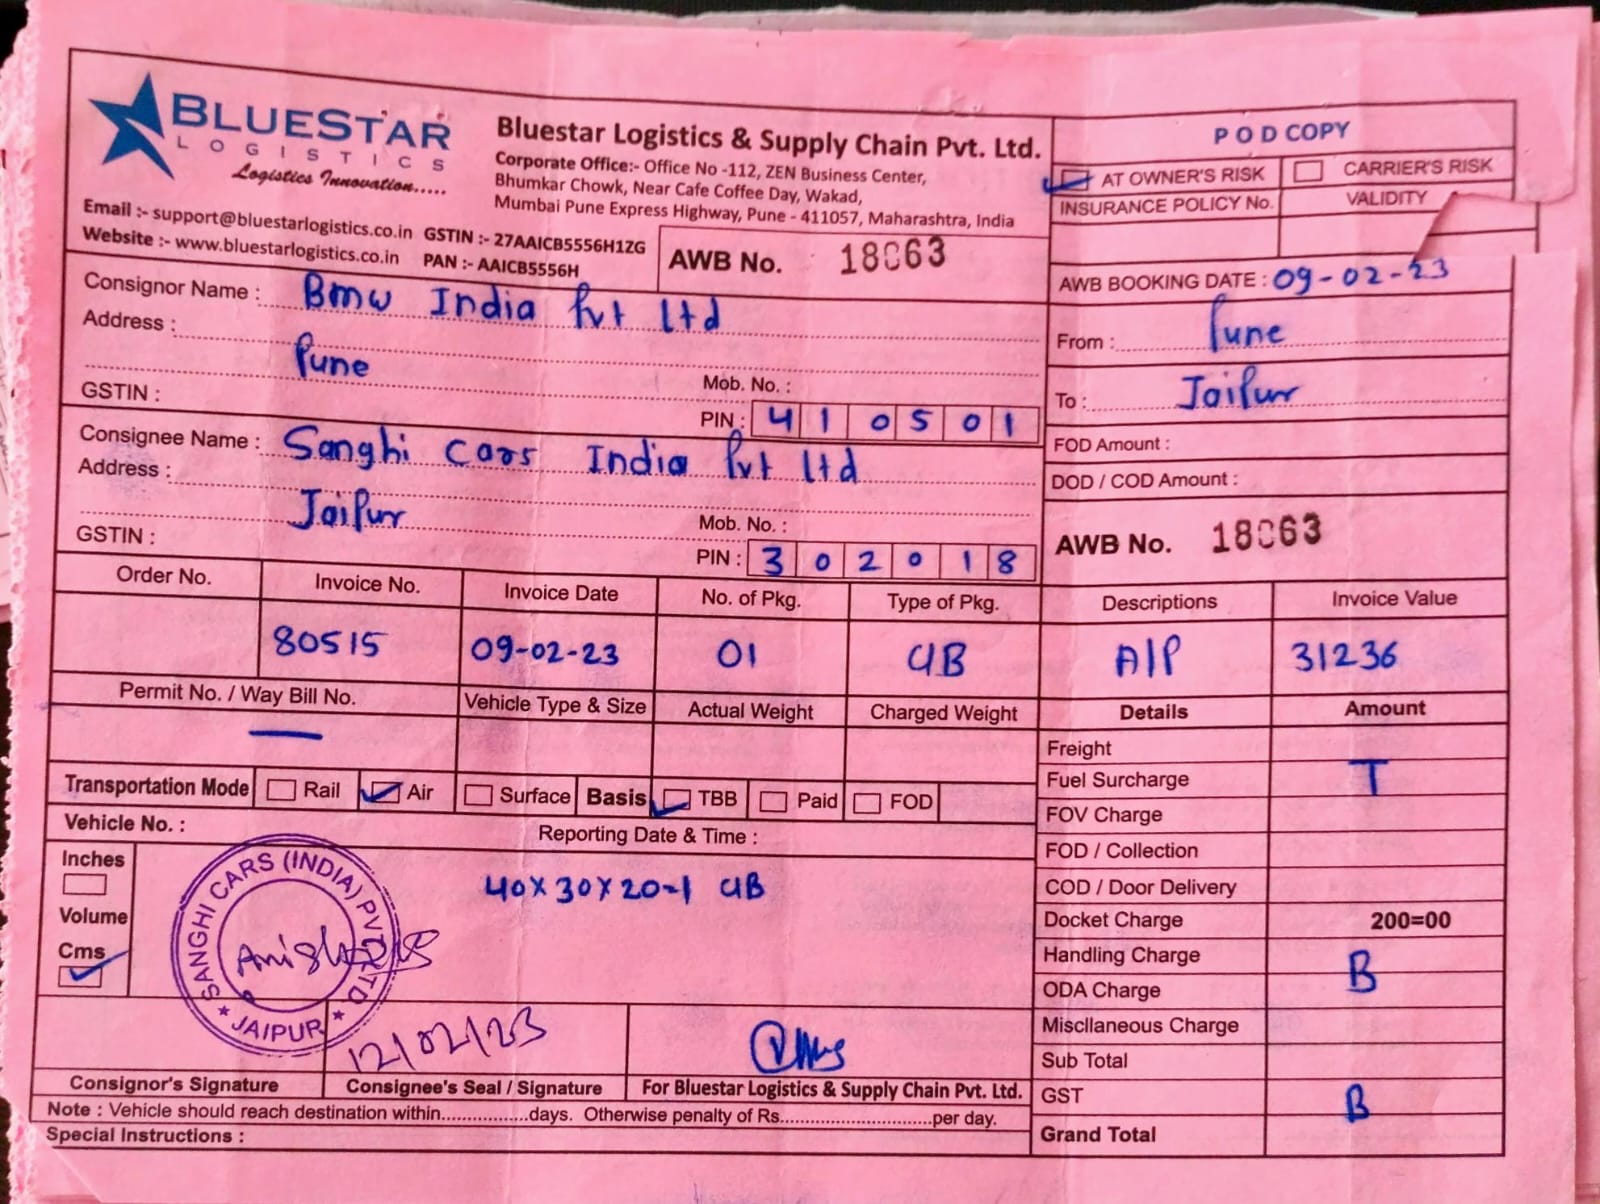 BLUESTAR
LOGISTICS
Logistics Innovation.....
Email :- support@bluestarlogistics.co.in
Website :- www.bluestarlogistics.co.in
GSTIN :- 27AAICB5556H1ZG
PAN :- AAICB5556H
Bluestar Logistics & Supply Chain Pvt. Ltd.
Corporate Office:- Office No -112, ZEN Business Center,
Bhumkar Chowk, Near Cafe Coffee Day, Wakad,
Mumbai Pune Express Highway, Pune - 411057, Maharashtra, India
AWB No. 18063
POD COPY
AT OWNER'S RISK CARRIER'S RISK
INSURANCE POLICY No. VALIDITY
AWB BOOKING DATE : 09-02-23
From : Pune
To : Jaipur
FOD Amount :
DOD / COD Amount :
AWB No. 18063
Consignor Name : Bmw India Pvt Ltd
Address :
Pune
Mob. No. :
GSTIN :
PIN : 410501
Consignee Name : Sanghi Cars India Pvt Ltd
Address :
Jaipur
Mob. No. :
GSTIN :
PIN : 302018
Order No. Invoice No. Invoice Date No. of Pkg. Type of Pkg. Descriptions Invoice Value
80515 09-02-23 01 CIB A/P 31236
Permit No. / Way Bill No. Vehicle Type & Size Actual Weight Charged Weight Details Amount
—
Transportation Mode Rail Air Surface Basis TBB Paid FOD
Vehicle No. : Reporting Date & Time :
Inches
Volume
Cms
40X30X20-1 CIB
SANGHI CARS (INDIA) PVT. LTD
★ JAIPUR ★
12/02/23
Consignor's Signature Consignee's Seal / Signature For Bluestar Logistics & Supply Chain Pvt. Ltd.
Note : Vehicle should reach destination within.................days. Otherwise penalty of Rs..............................per day.
Special Instructions :
Freight
Fuel Surcharge T
FOV Charge
FOD / Collection
COD / Door Delivery
Docket Charge 200=00
Handling Charge B
ODA Charge
Miscllaneous Charge
Sub Total
GST B
Grand Total